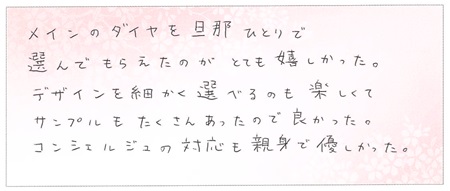 メインのダイヤを旦那ひとりで
選んでもらえたのがとても嬉しかった。
デザインを細かく選べるのも楽しくて
サンプルもたくさんあったので良かった。
コンシェルジュの対応も親身で優しかった。